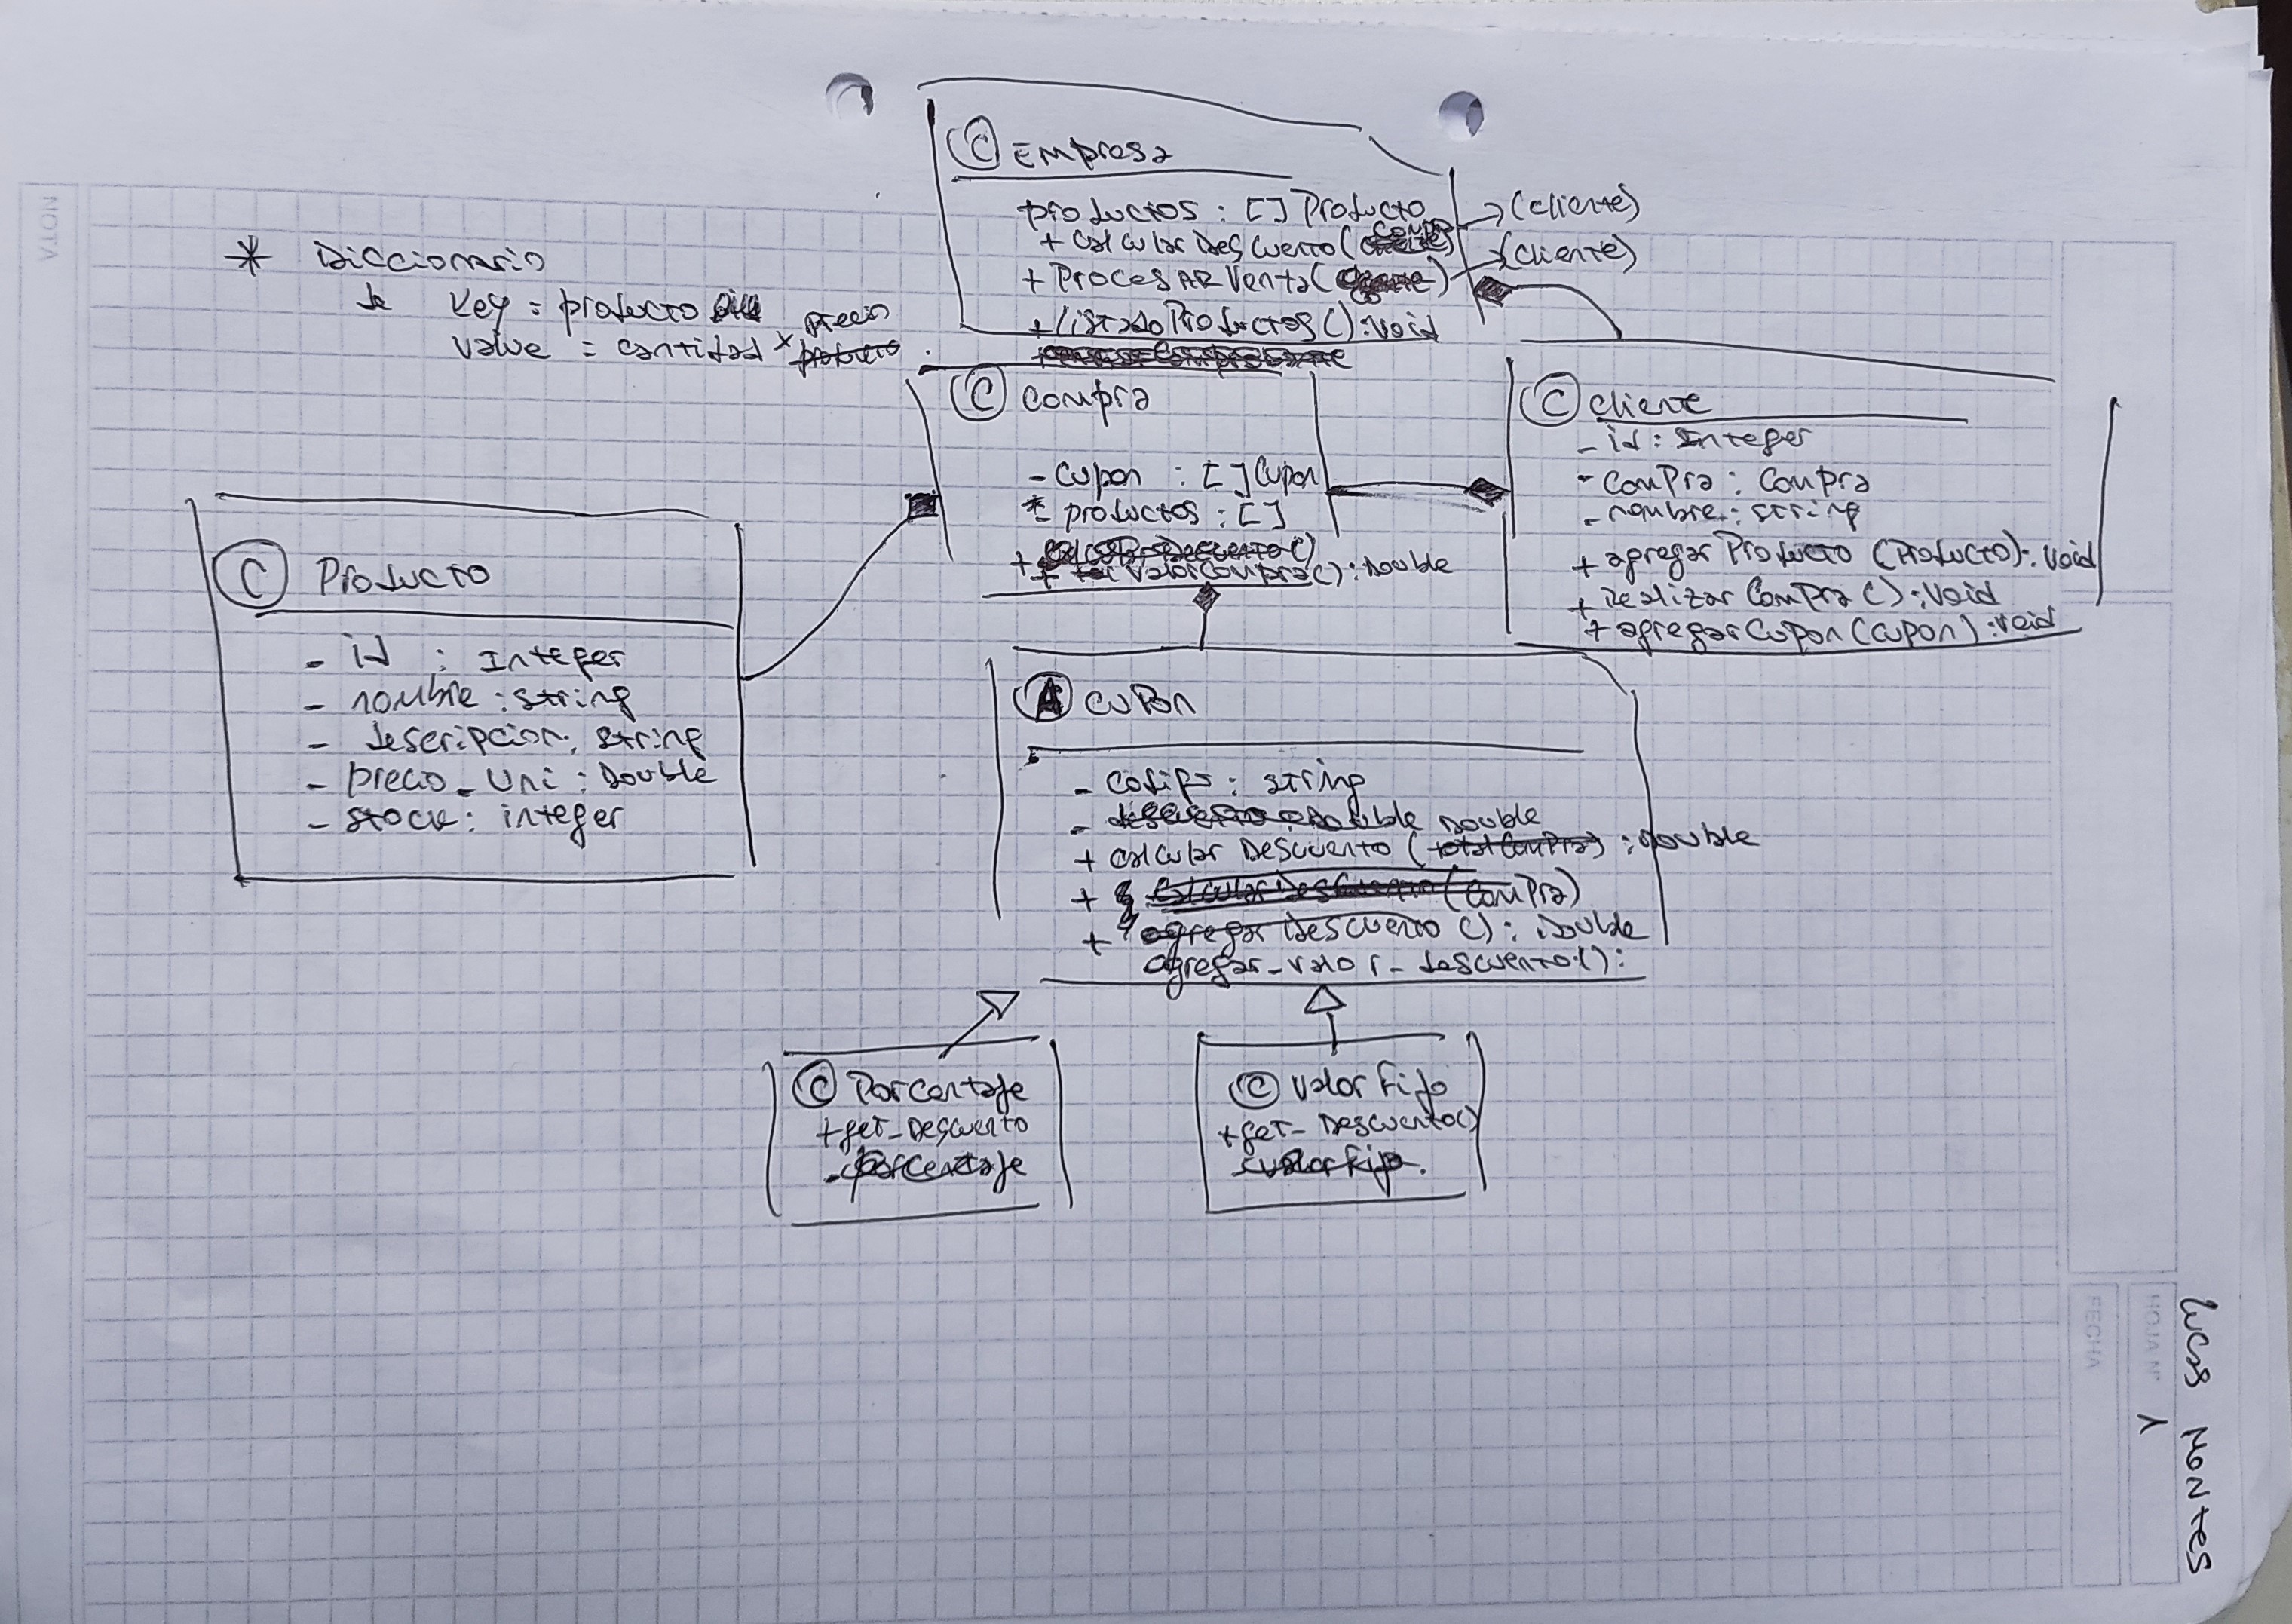 C Empresa
productos : [] Producto
+ calcularDescuento( ) → (cliente)
+ ProcesARVenta( ) → (cliente)
+ listadoProductos() : void
* Diccionario
key = producto
value = cantidad x precio
C Compra
- Cupon : [] Cupon
*- productos : []
+ valorCompra() : Double
C cliente
- id : Integer
- Compra : Compra
- nombre : string
+ agregarProducto (Producto) : void
+ realizarCompra() : void
+ agregarCupon(cupon) : void
C Producto
- id : Integer
- nombre : string
- descripcion : string
- precio_uni : Double
- stock : integer
A Cupon
- codigo : string
- Double
+ calcularDescuento ( ) : Double
+ (ComPra)
+ agregarDescuento() : Double
agregar_valor_descuento() :
C Porcentaje
+ get_Descuento
- porcentaje
C ValorFijo
+ get_Descuento()
- valorFijo
NOTA
HOJA Nº 1
FECHA
lucas Montes